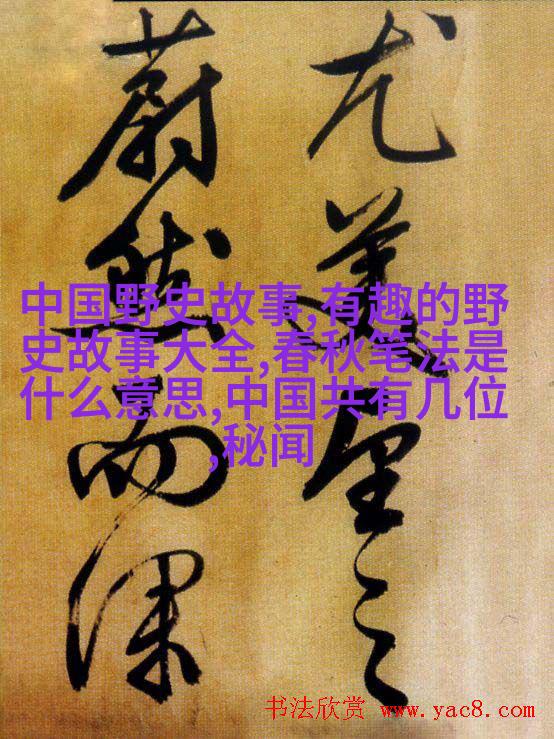 尤美望之
蔚然而深
中国野史故事,有趣的野
史故事大全,春秋笔法是
什么意思,中国共有几位
,秘闻
书法欣赏 www.yac8.com